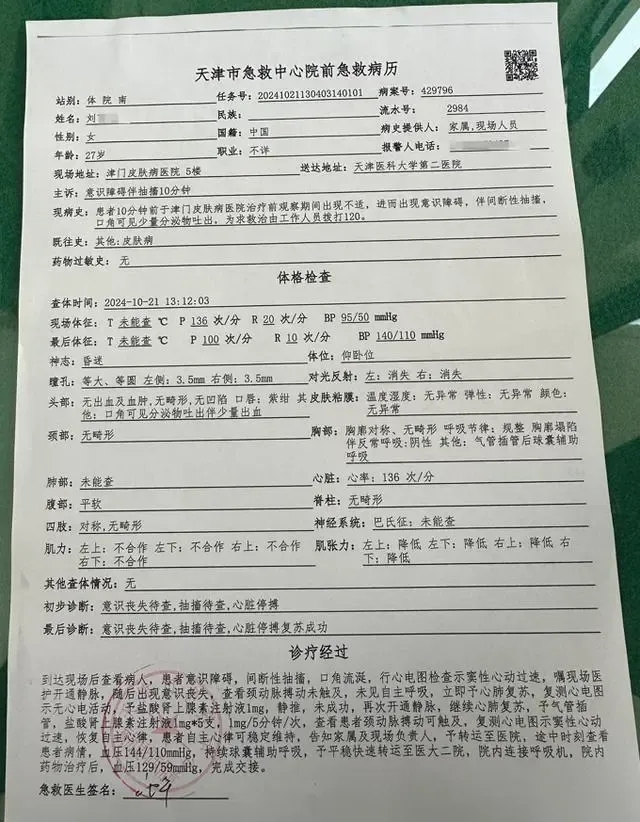 天津市急救中心院前急救病历
站别: 体 院 南 任务号: 20241021130403140101 病案号: 429796
姓名: 刘 民族: 流水号: 2984
性别: 女 国籍: 中国 病史提供人: 家属,现场人员
年龄: 27岁 职业: 不详 报警人电话:
现场地址: 津门皮肤病医院 5楼 送达地址: 天津医科大学第二医院
主诉: 意识障碍伴抽搐10分钟
现病史: 患者10分钟前于津门皮肤病医院治疗前观察期间出现不适,进而出现意识障碍,伴间断性抽搐,
口角可见少量分泌物吐出,为求救治由工作人员拨打120。
既往史: 其他:皮肤病
药物过敏史: 无
体格检查
查体时间: 2024-10-21 13:12:03
现场体征: T 未能查 ℃ P 136 次/分 R 20 次/分 BP 95/50 mmHg
最后体征: T 未能查 ℃ P 100 次/分 R 10 次/分 BP 140/110 mmHg
神志: 昏迷 体位: 仰卧位
瞳孔: 等大、等圆 左侧: 3.5mm 右侧: 3.5mm 对光反射: 左: 消失 右: 消失
头部: 无出血及血肿,无畸形,无凹陷 口唇: 紫绀 其他: 口角可见分泌物吐出伴少量出血 皮肤粘膜: 温度湿度: 无异常 弹性: 无异常 颜色: 无异常
颈部: 无畸形 胸部: 胸廓对称、无畸形 呼吸节律: 规整 胸廓塌陷
伴反常呼吸:阴性 其他: 气管插管后球囊辅助
呼吸
肺部: 未能查 心脏: 心率: 136 次/分
腹部: 平软 脊柱: 无畸形
四肢: 对称,无畸形 神经系统: 巴氏征: 未能查
肌力: 左上: 不合作 左下: 不合作 右上: 不合作 右下: 不合作 肌张力: 左上: 降低 左下: 降低 右上: 降低 右下: 降低
其他查体情况: 无
初步诊断: 意识丧失待查,抽搐待查,心脏停搏
最后诊断: 意识丧失待查,抽搐待查,心脏停搏复苏成功
诊疗经过
到达现场后查看病人,患者意识障碍,间断性抽搐,口角流涎,行心电图检查示窦性心动过速,嘱现场医
护开通静脉,随后出现意识丧失,查看颈动脉搏动未触及,未见自主呼吸,立即予心肺复苏,复测心电图
示无心电活动,予盐酸肾上腺素注射液1mg,静推,未成功,再次开通静脉,继续心肺复苏,予气管插
管,盐酸肾上腺素注射液1mg*5支,1mg/5分钟/次,查看患者颈动脉搏动可触及,复测心电图示窦性心动
过速,恢复自主心律,患者自主心律可稳定维持,告知家属及现场负责人,予转运至医院,途中时刻查看
患者病情,血压144/110mmHg,持续球囊辅助呼吸,予平稳快速转运至医大二院,院内连接呼吸机,院内
药物治疗后,血压129/59mmHg,完成交接。
急救医生签名: